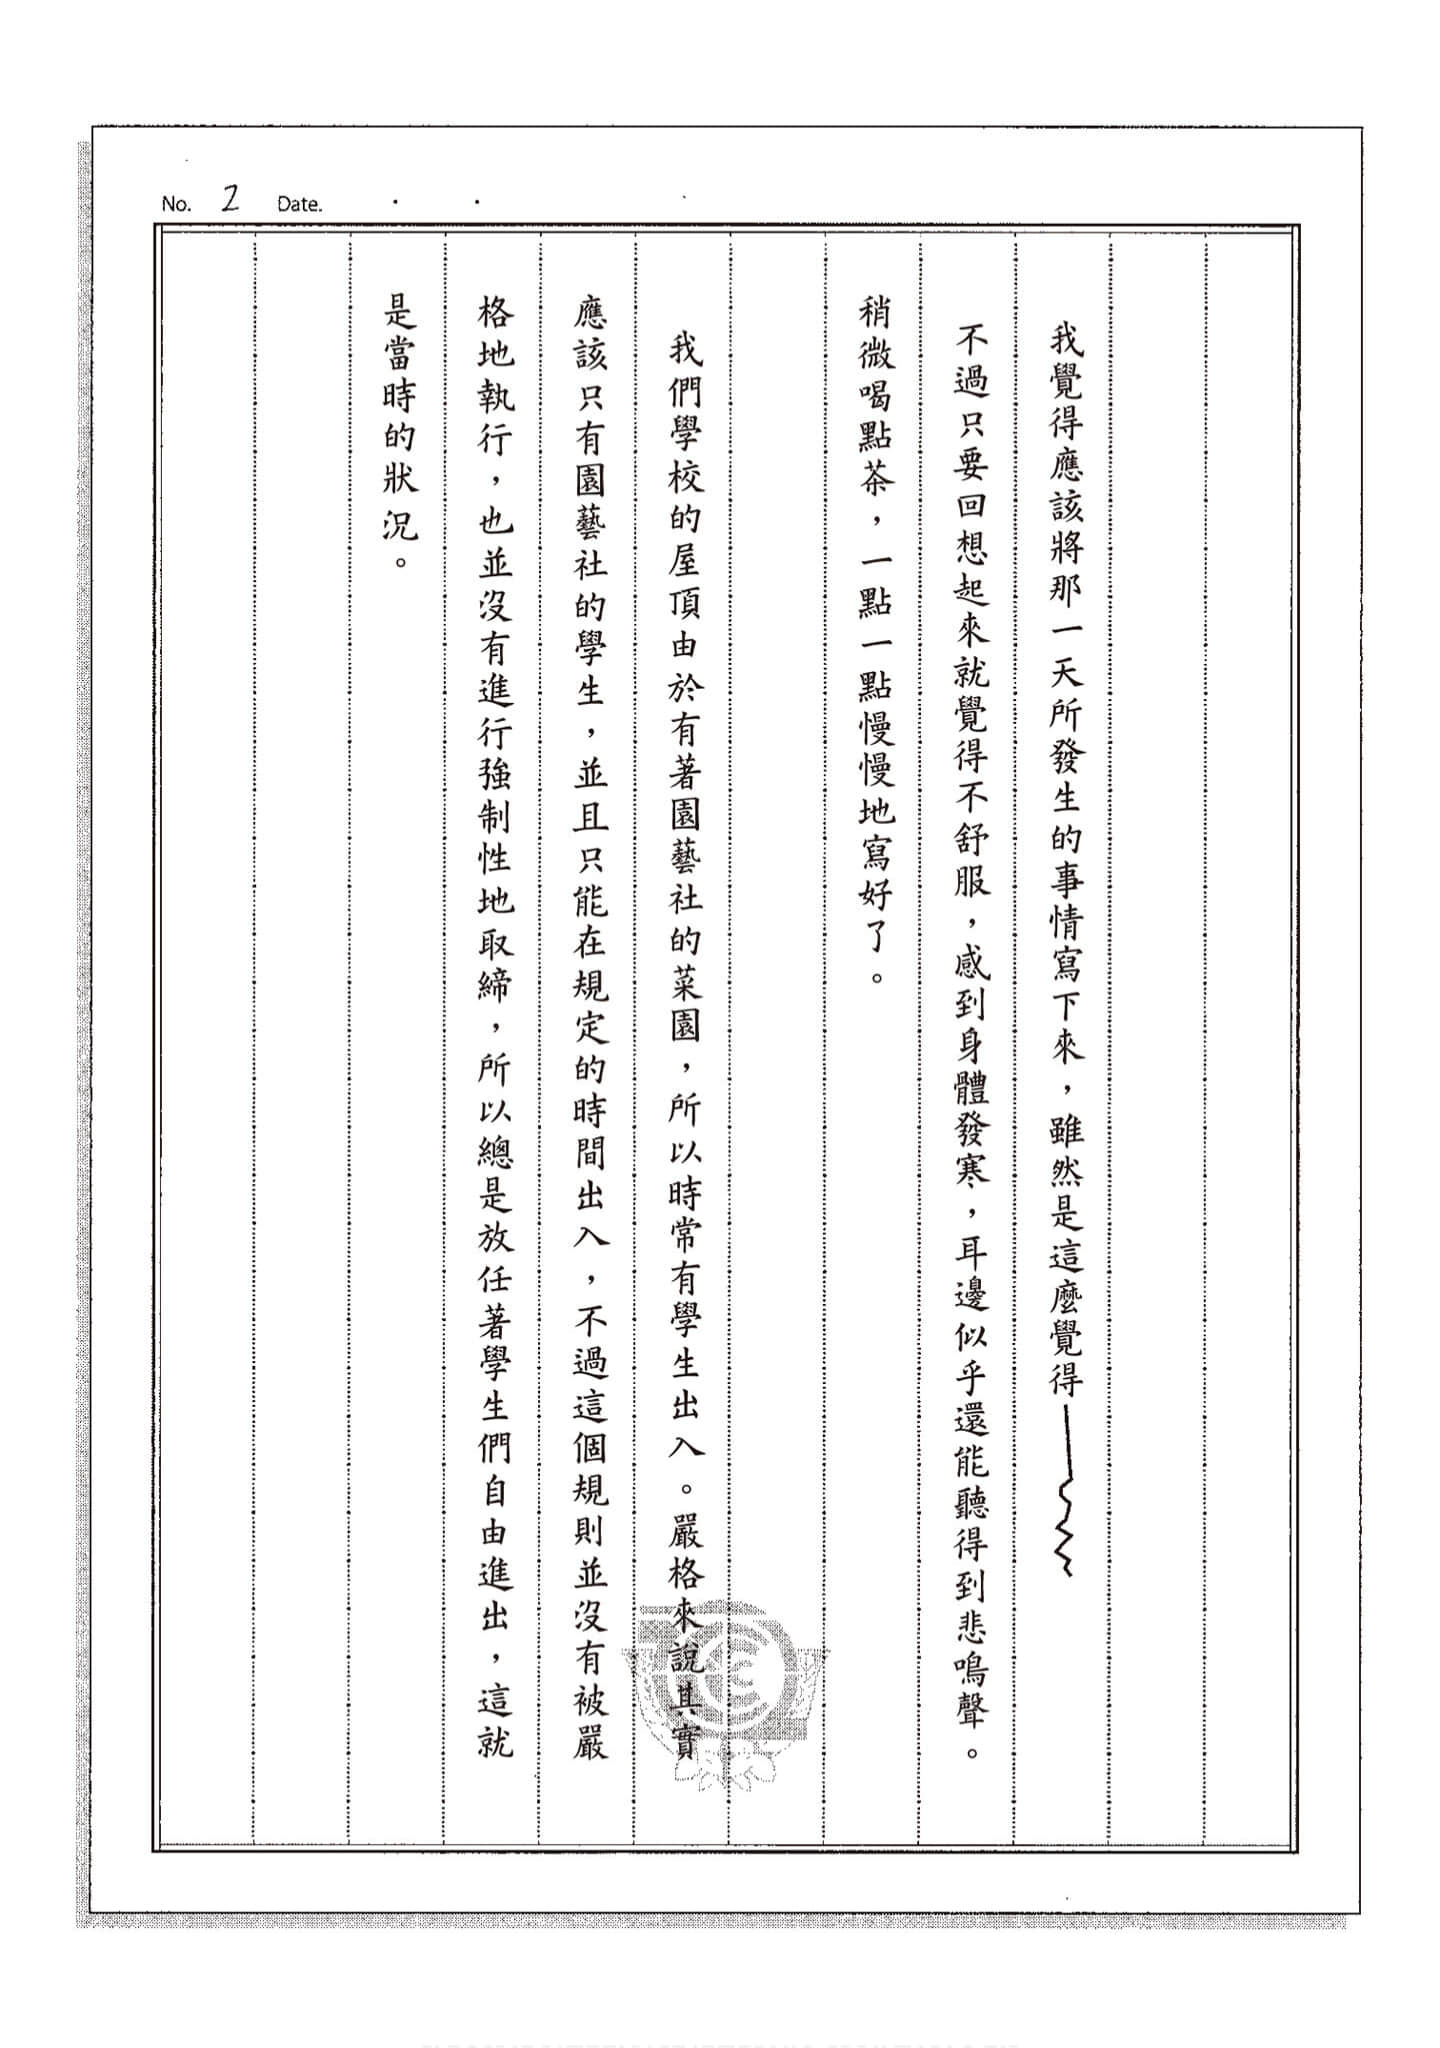 No. 2 Date. ． ．
我覺得應該將那一天所發生的事情寫下來，雖然是這麼覺得
不過只要回想起來就覺得不舒服，感到身體發寒，耳邊似乎還能聽得到悲鳴聲。
稍微喝點茶，一點一點慢慢地寫好了。
我們學校的屋頂由於有著園藝社的菜園，所以時常有學生出入。嚴格來說其實
應該只有園藝社的學生，並且只能在規定的時間出入，不過這個規則並沒有被嚴
格地執行，也並沒有進行強制性地取締，所以總是放任著學生們自由進出，這就
是當時的狀況。